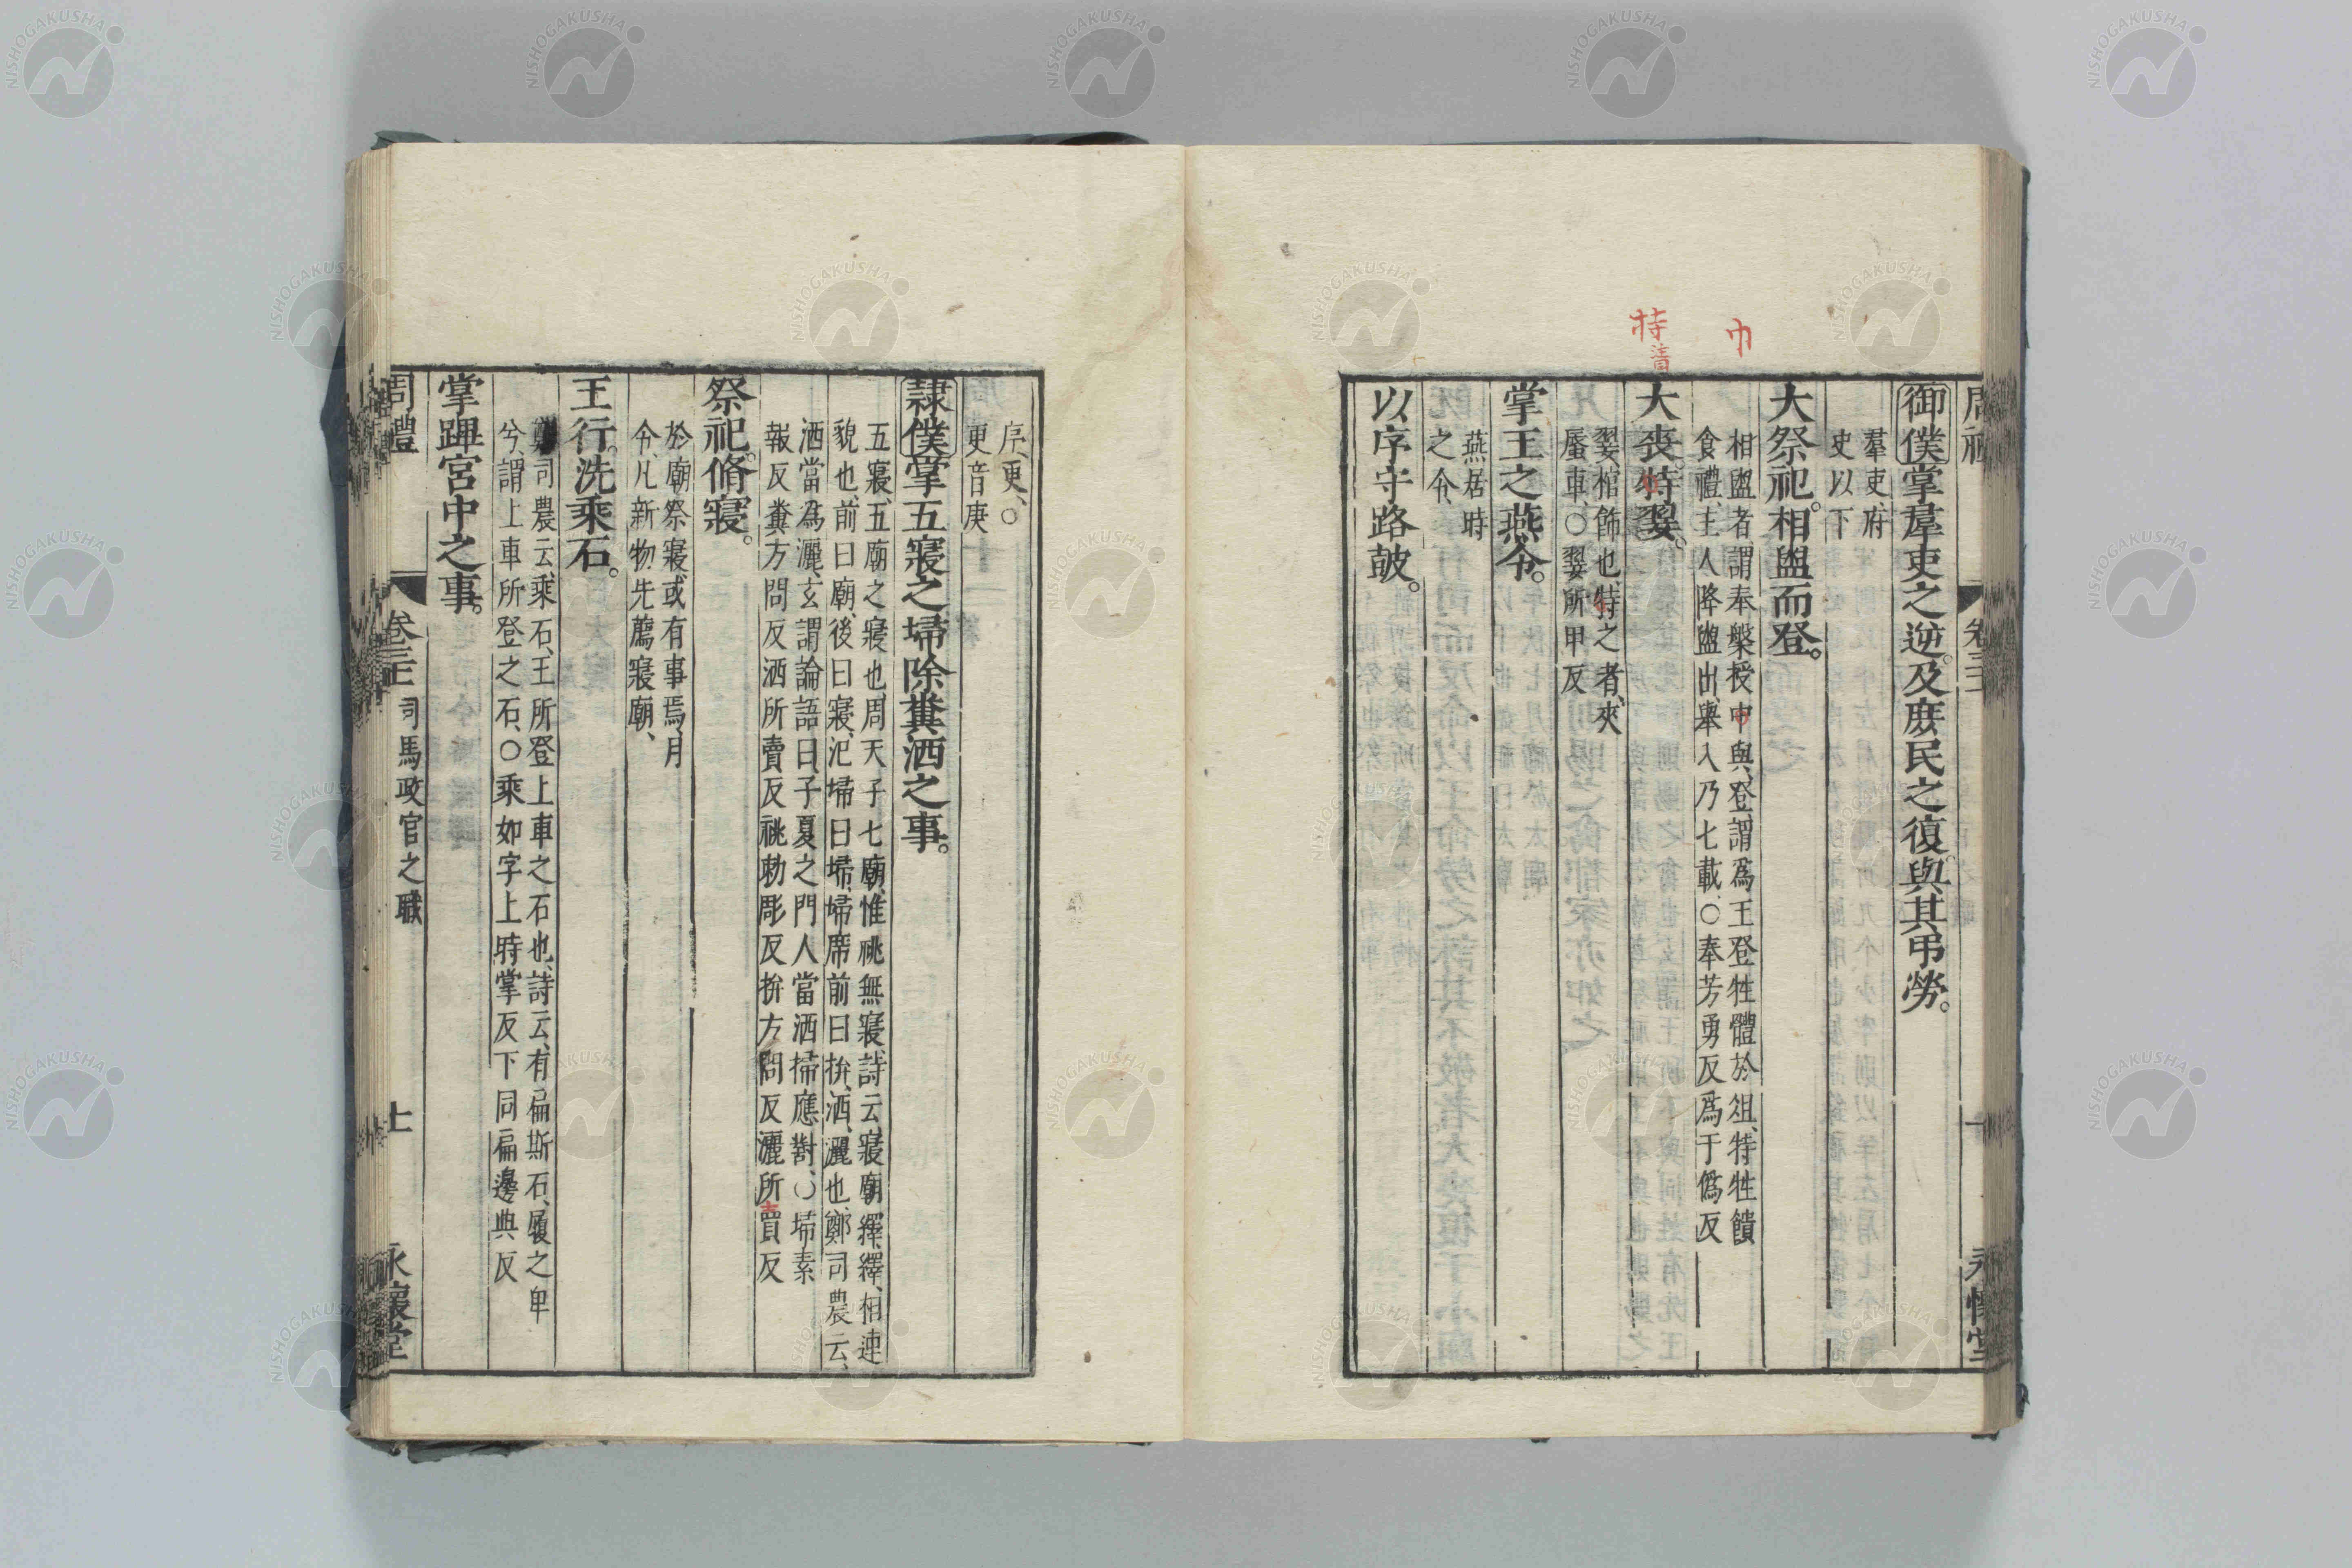 巾
持
清
周禮
卷三
永懷堂
御僕掌羣吏之逆。及庶民之復。與其弔勞。
羣吏、府
史以下
大祭祀。相盥而登。
相盥者、謂奉槃授巾與、登、謂爲王登牲體於俎、特牲饋
食禮、主人降盥出、舉入乃匕載、○奉芳勇反爲于僞反
大喪特翣。
翣、棺飾也、特之者、夾
蜃車、○翣所甲反
掌王之燕令。
燕居時
之令、
以序守路鼓。
序、更、○
更音庚
隷僕掌五寢之埽除糞洒之事。
五寢、五廟之寢也、周天子七廟、惟祧無寢、詩云、寢廟繹繹、相連
貌也、前曰廟、後曰寢、汜埽曰埽、埽席前曰拚、洒、灑也、鄭司農云、
洒當爲灑、玄謂論語曰、子夏之門人當洒掃應對、○埽素
報反糞方問反洒所賣反祧勑彫反拚方問反灑所賣反
祭祀。脩寢。
於廟祭寢、或有事焉、月
令、凡新物、先薦寢廟、
王行。洗乘石。
鄭司農云、乘石、王所登上車之石也、詩云、有扁斯石、履之卑
兮、謂上車所登之石、○乘如字上時掌反下同扁邊典反
掌蹕宮中之事。
周禮
卷三
司馬政官之職
士
永懷堂